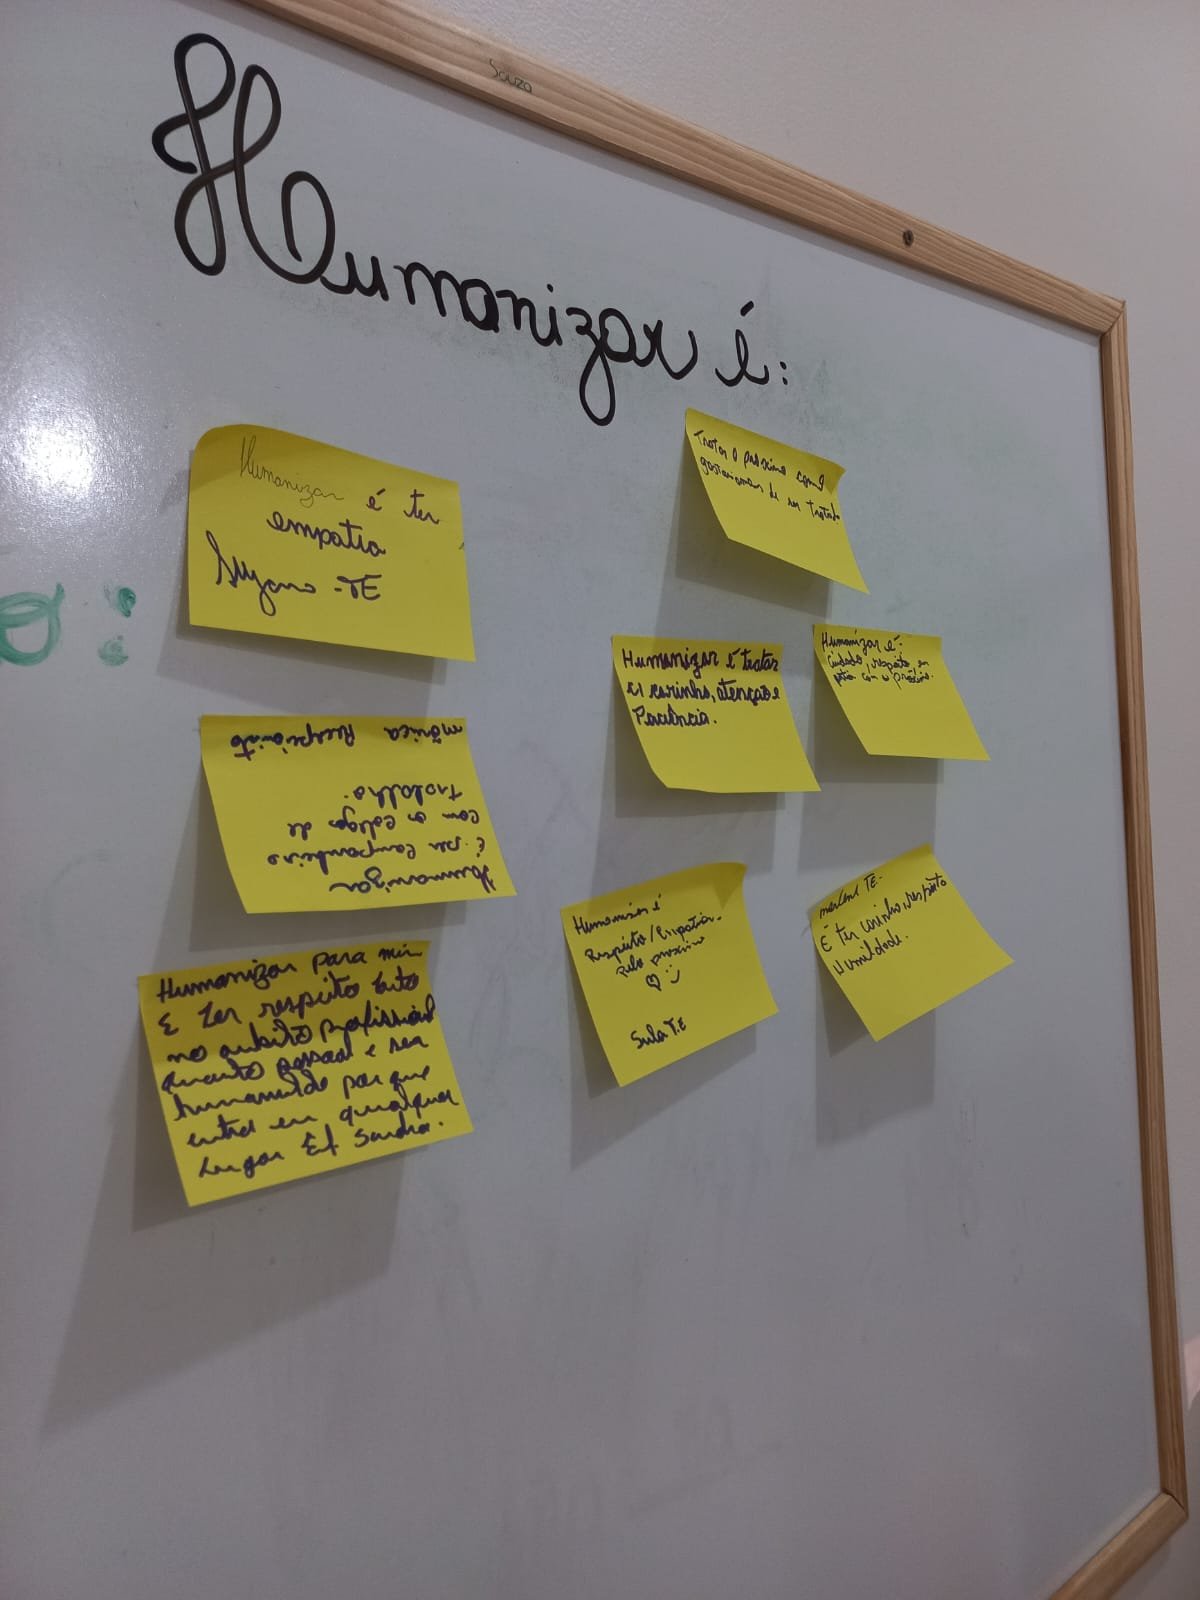 Souza
Humanizar é:
Humanizar é ter
empatia
Suzana - TE
Tratar o próximo como
gostaríamos de ser tratado
Humanizar é tratar
c/ carinho, atenção e
Paciência.
Humanizar é:
Cuidado, respeito, em
patia com o próximo.
Humanizar
é ser companheiro
com os colegas de
trabalho.
Mônica Recepcionista
Humanizar é
Respeito/Empatia
pelo próximo
Sula T.E
TE-
É ter carinho, respeito
Humildade.
Humanizar para mim
É ter respeito tanto
no âmbito profissional
quanto pessoal e ser
humanilde porque
entra em qualquer
lugar Ef Sandra.